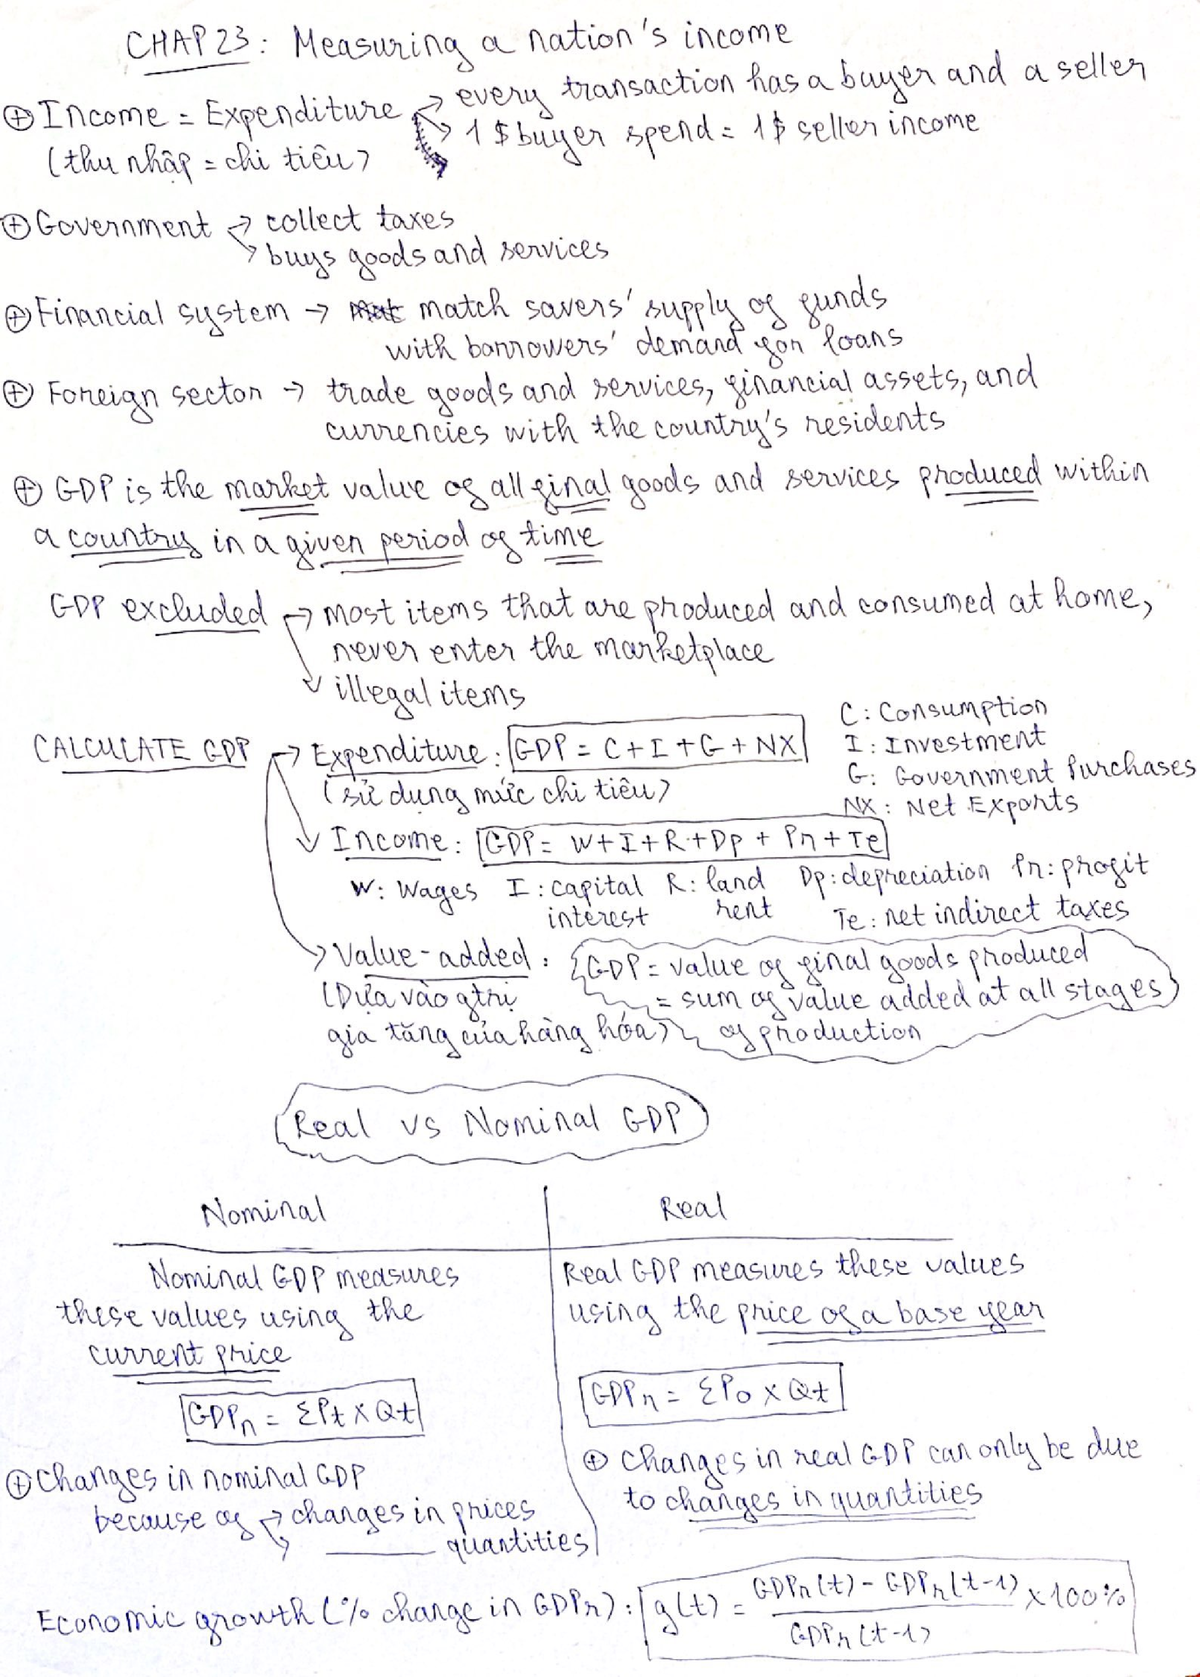 CHAP 23: Measuring a nation's income
⊕ Income = Expenditure → every transaction has a buyer and a seller
(thu nhập = chi tiêu) → 1$ buyer spend = 1$ seller income
⊕ Government → collect taxes
→ buys goods and services
⊕ Financial system → match savers' supply of funds
with borrowers' demand for loans
⊕ Foreign sector → trade goods and services, financial assets, and
currencies with the country's residents
⊕ GDP is the market value of all final goods and services produced within
a country in a given period of time
GDP excluded → most items that are produced and consumed at home,
never enter the marketplace
→ illegal items
CALCULATE GDP → Expenditure: GDP = C + I + G + NX
(sử dụng mức chi tiêu)
C: Consumption
I: Investment
G: Government Purchases
NX: Net Exports
→ Income: GDP = W + I + R + Dp + Pr + Te
W: Wages I: capital interest R: land rent Dp: depreciation Pr: profit
Te: net indirect taxes
→ Value-added: GDP = value of final goods produced
(Dựa vào gtrị = sum of value added at all stages
gia tăng của hàng hóa) of production
Real vs Nominal GDP
Nominal
Nominal GDP measures
these values using the
current price
GDPn = ΣPt x Qt
⊕ Changes in nominal GDP
because of → changes in prices
→ ______ quantities
Real
Real GDP measures these values
using the price of a base year
GDPr = ΣPo x Qt
⊕ Changes in real GDP can only be due
to changes in quantities
Economic growth (% change in GDPr): g(t) = GDPr(t) - GDPr(t-1) / GDPr(t-1) x 100%